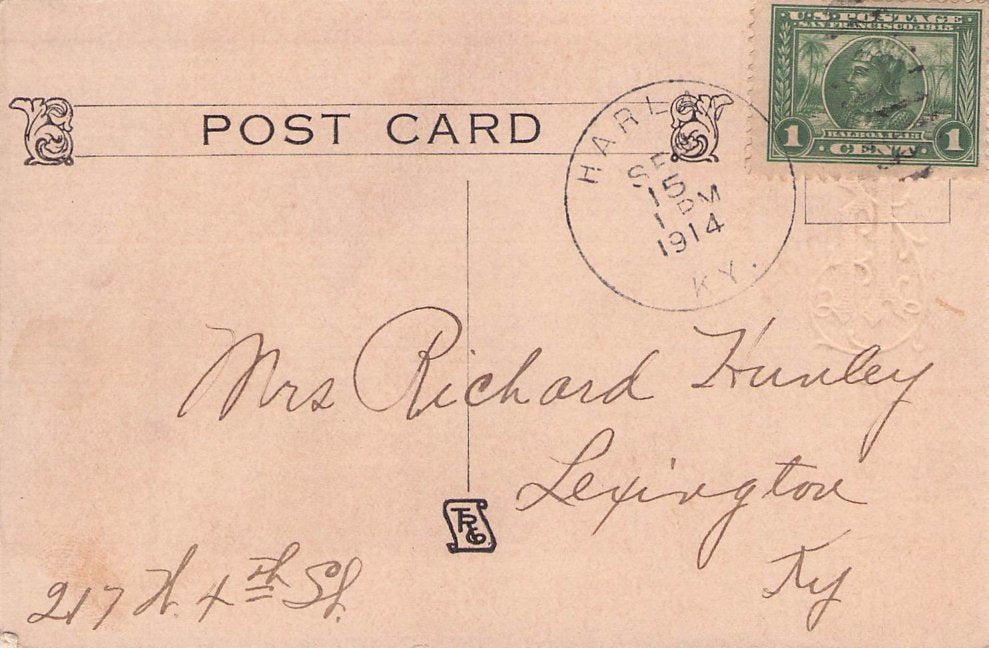 U.S. POSTAGE
SAN FRANCISCO 1915
BALBOA 1513
1 CENT 1
POST CARD
HARLA
SEP
15
1 PM
1914
KY.
Mrs Richard Hunley
Lexington
Ky
217 W. 4th St.
TRG